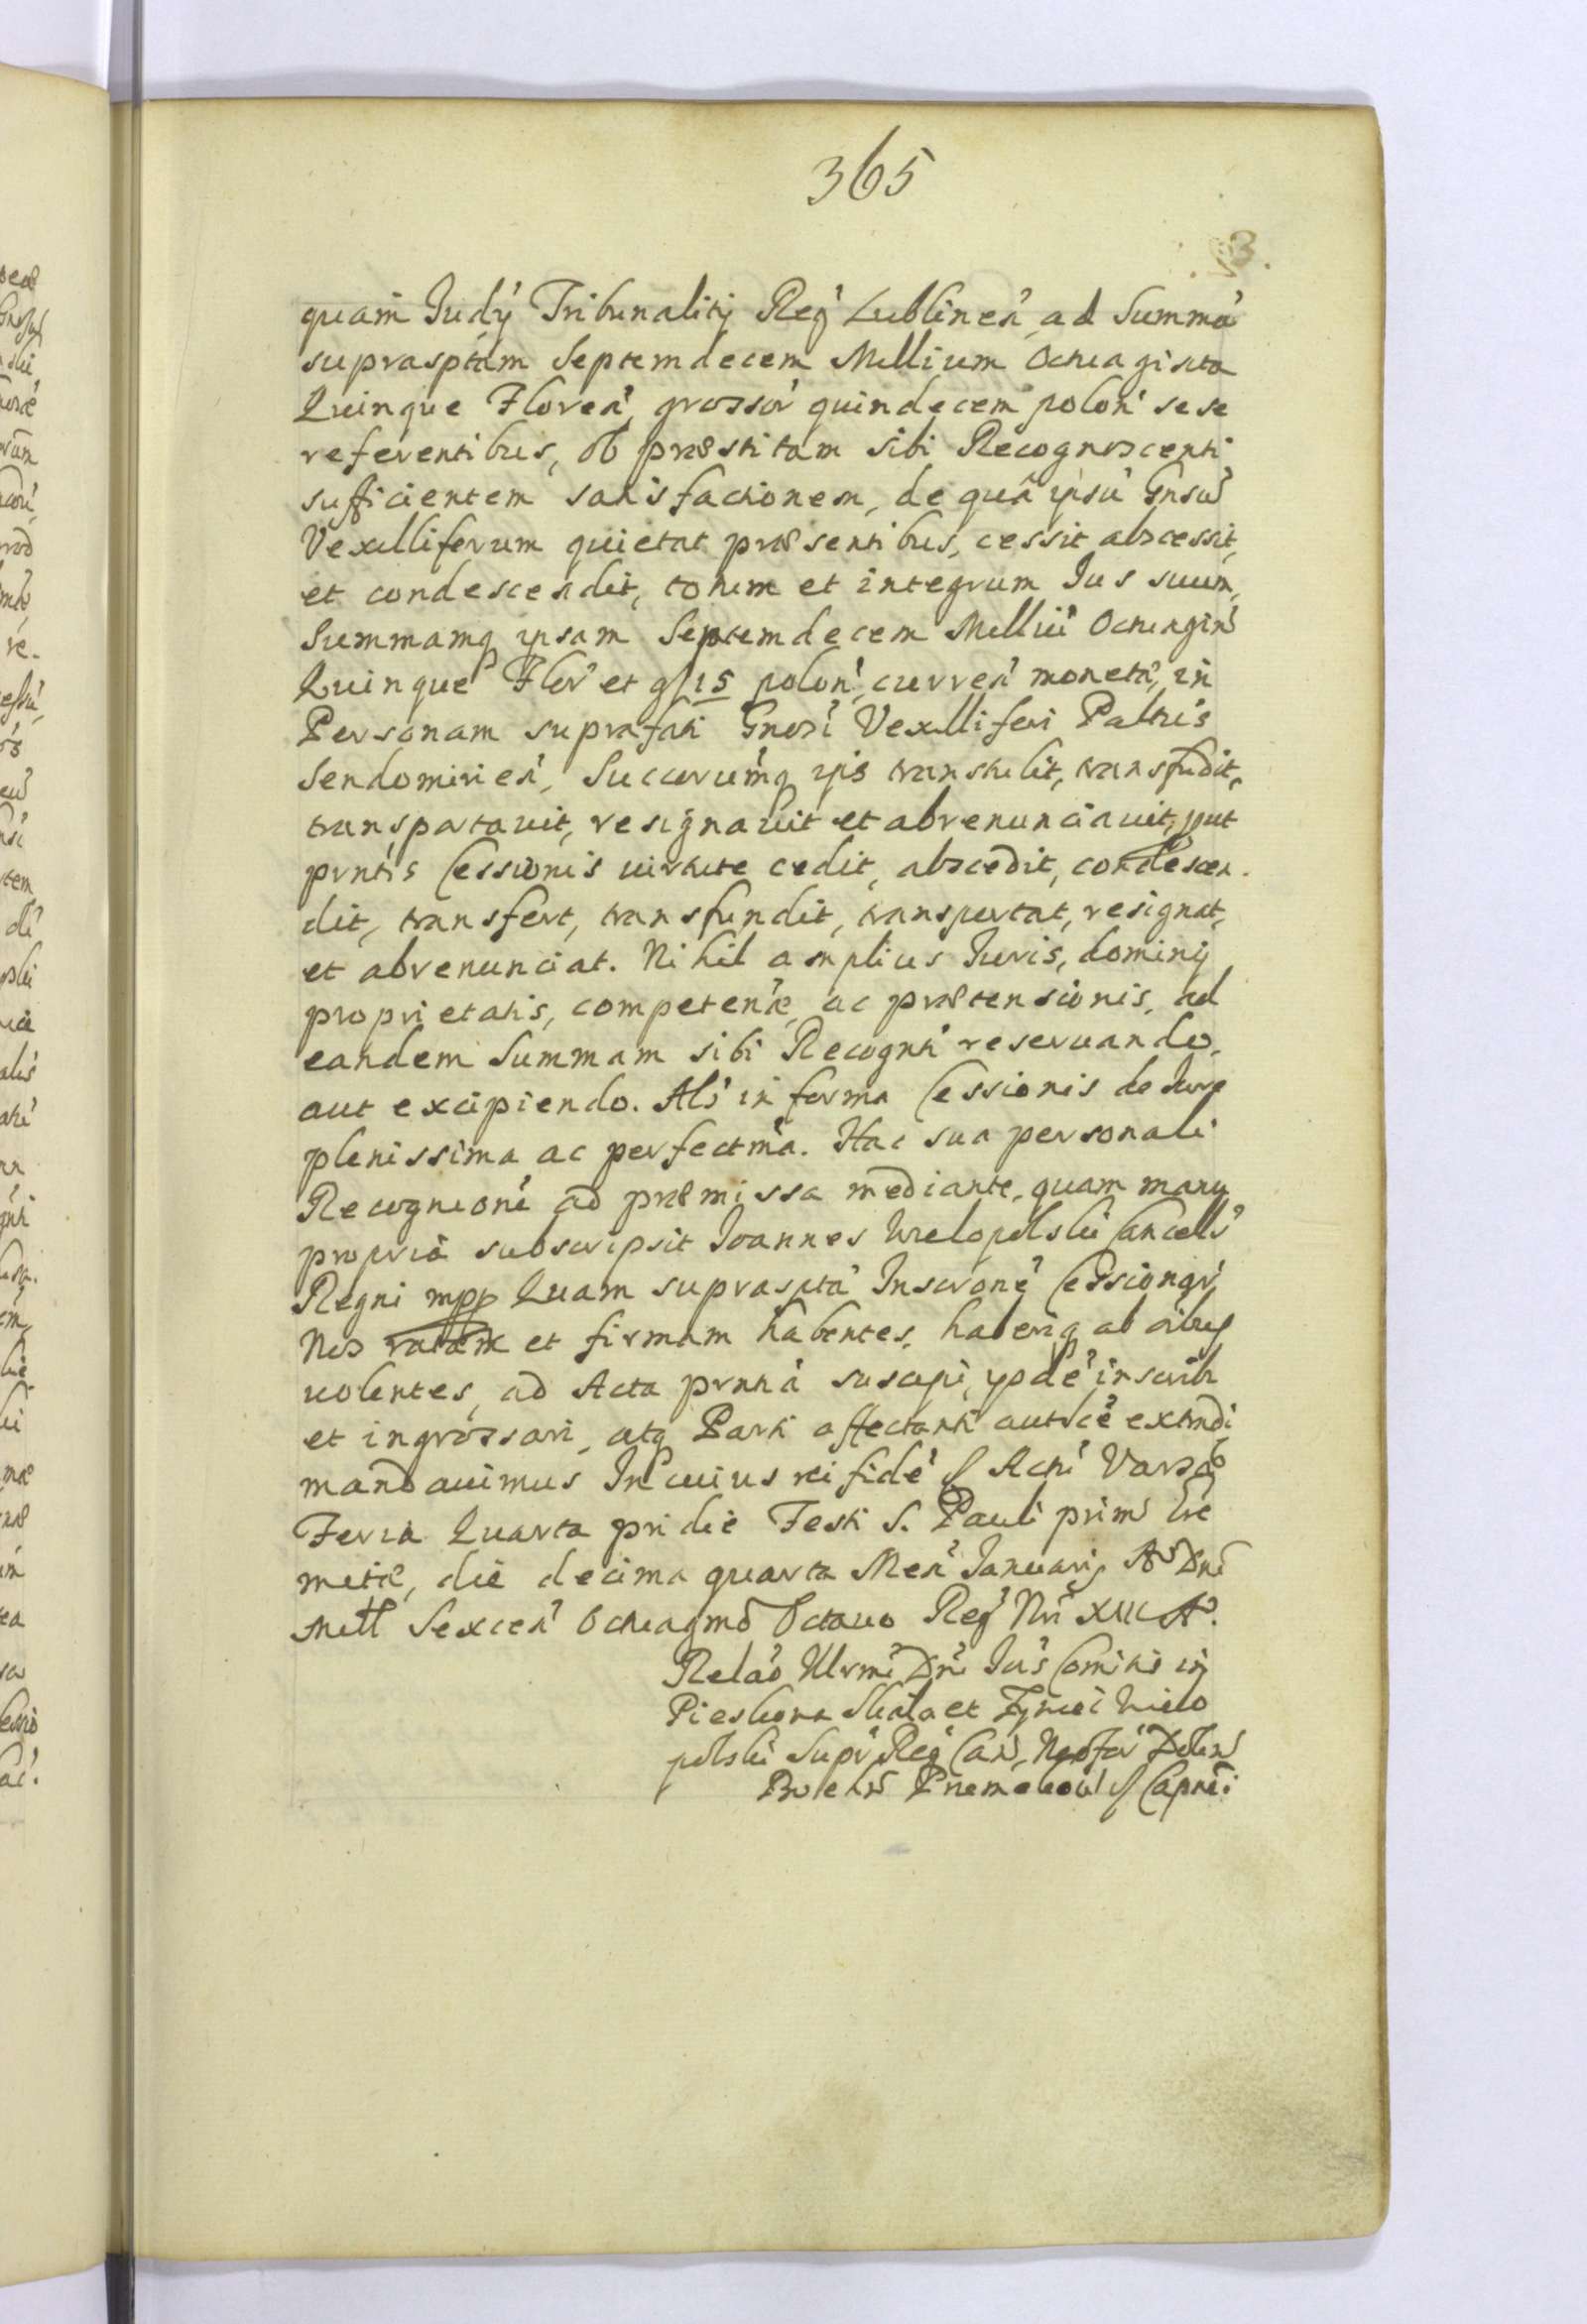 365
3.
quam Judÿ Tribunalitÿ Regˀ Lublinenˀ ad Summãˀ
suprasptam Septemdecem Millium Octuaginta
Quinque Florenˀ, grossorˀ quindecem polonˀ sese
referentibus, ob præstitam sibi Recognoscenti
sufficientem satisfactionem, de quâ ipsũ Gnsũ
Vexilliferum quietat præsentibus, cessit abscessit,
et condescendit, totum et integrum Jus suum,
Summamq ipsam Septemdecem Milliũ Octuagin
Quinque Florˀ et g 15 polonˀ, currenˀ monetæˀ, in
Personam suprafati Gnosi Vexilliferi Paltus
Sendomirienˀ, Succorumq ipˀs transtulit, transfudit,
transportauit, resignauit et abrenunciauit, put
pñtis Cessionis uirtute cedit, abscedit, condescen
dit, transfert, transfundit, transportat, resignat,
et abrenunciat. Nihil amplius Juris, dominÿ
proprietatis, competenˀæ, ac prætensionis, ad
eandem Summam sibi Recognti reseruando,
aut excipiendo. Alsˀ in forma Cessionis de Jure
plenissima ac perfectmˀa. Hac sua personali
Recognitioneˀ ad præmissa mediante, quam manu
propria subscripsit Joannes Wielopolski Cancellsˀ
Regni mpp Quam supraspta Inscronẽ Cessionorˀ,
Nos ratam et firmam habentes, haberiq ab oĩbus
uolentes, ad Acta pñtiã suscipi, ipde inscribi
et ingrossari, atq Parti affectanti authceˀ extradi
mandauimus In cuius rei fidẽ Actũ Varsaˀ
Feria Quarta pridie Festi S. Pauli primi Ere
mitæ, die decima quarta Menˀ Januarÿ Aº Dni
Mill Sexcenˀ Octuagmõ Octauo Regˀ Nri XIII Aº.
Relaõ Illrmi Dni Jõis Comitis in
Pieskowa Skala et Zywiec Wielo
polski Supˀ Regˀ Canˀ,
Capnei